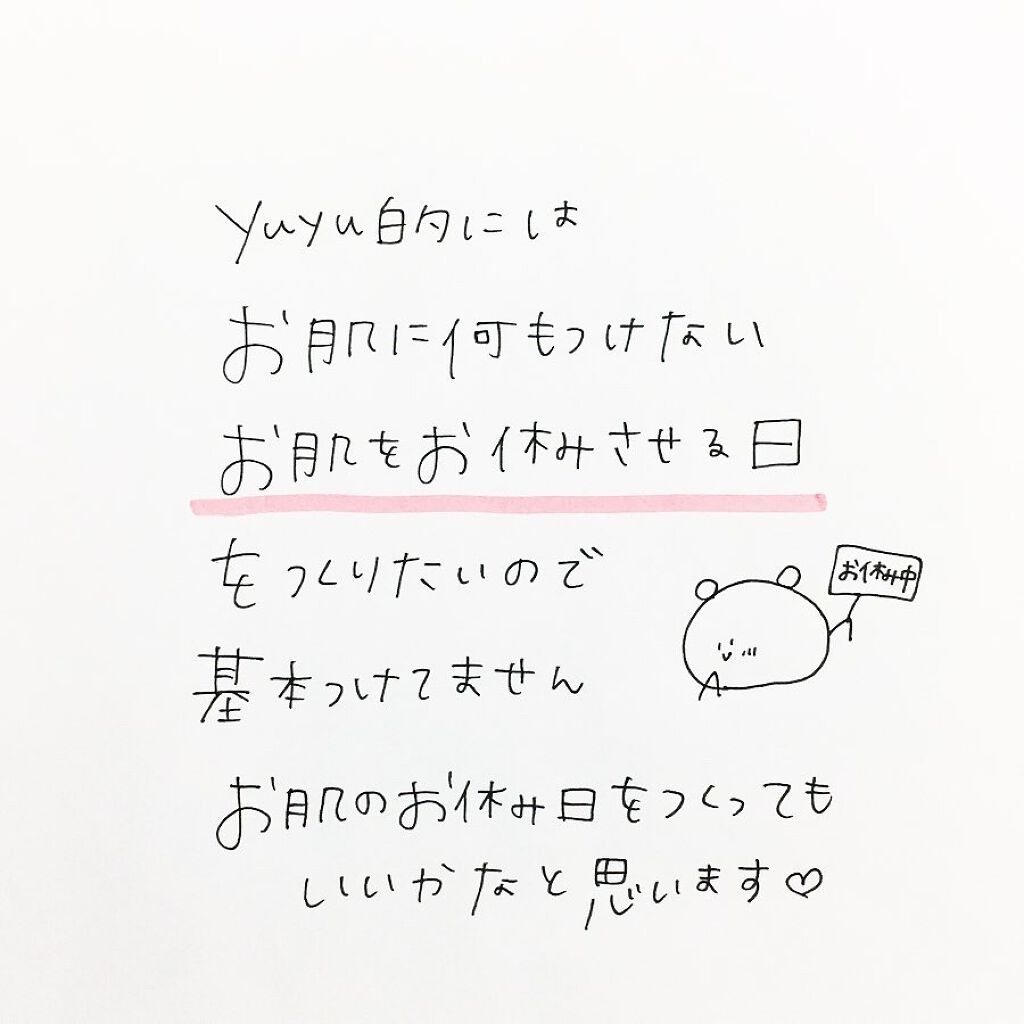 yuyu的には
お肌に何もつけない
お肌をお休みさせる日
をつくりたいので
お休み中
基本つけてません
お肌のお休み日をつくっても
いいかなと思います♡